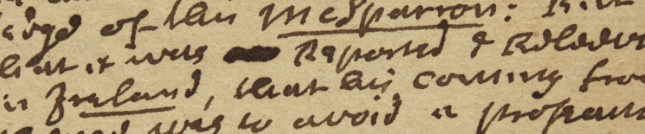 of this McSparron: But
that it was Reported & Beleev
in Ireland, that his coming from
was to avoid a prosecut